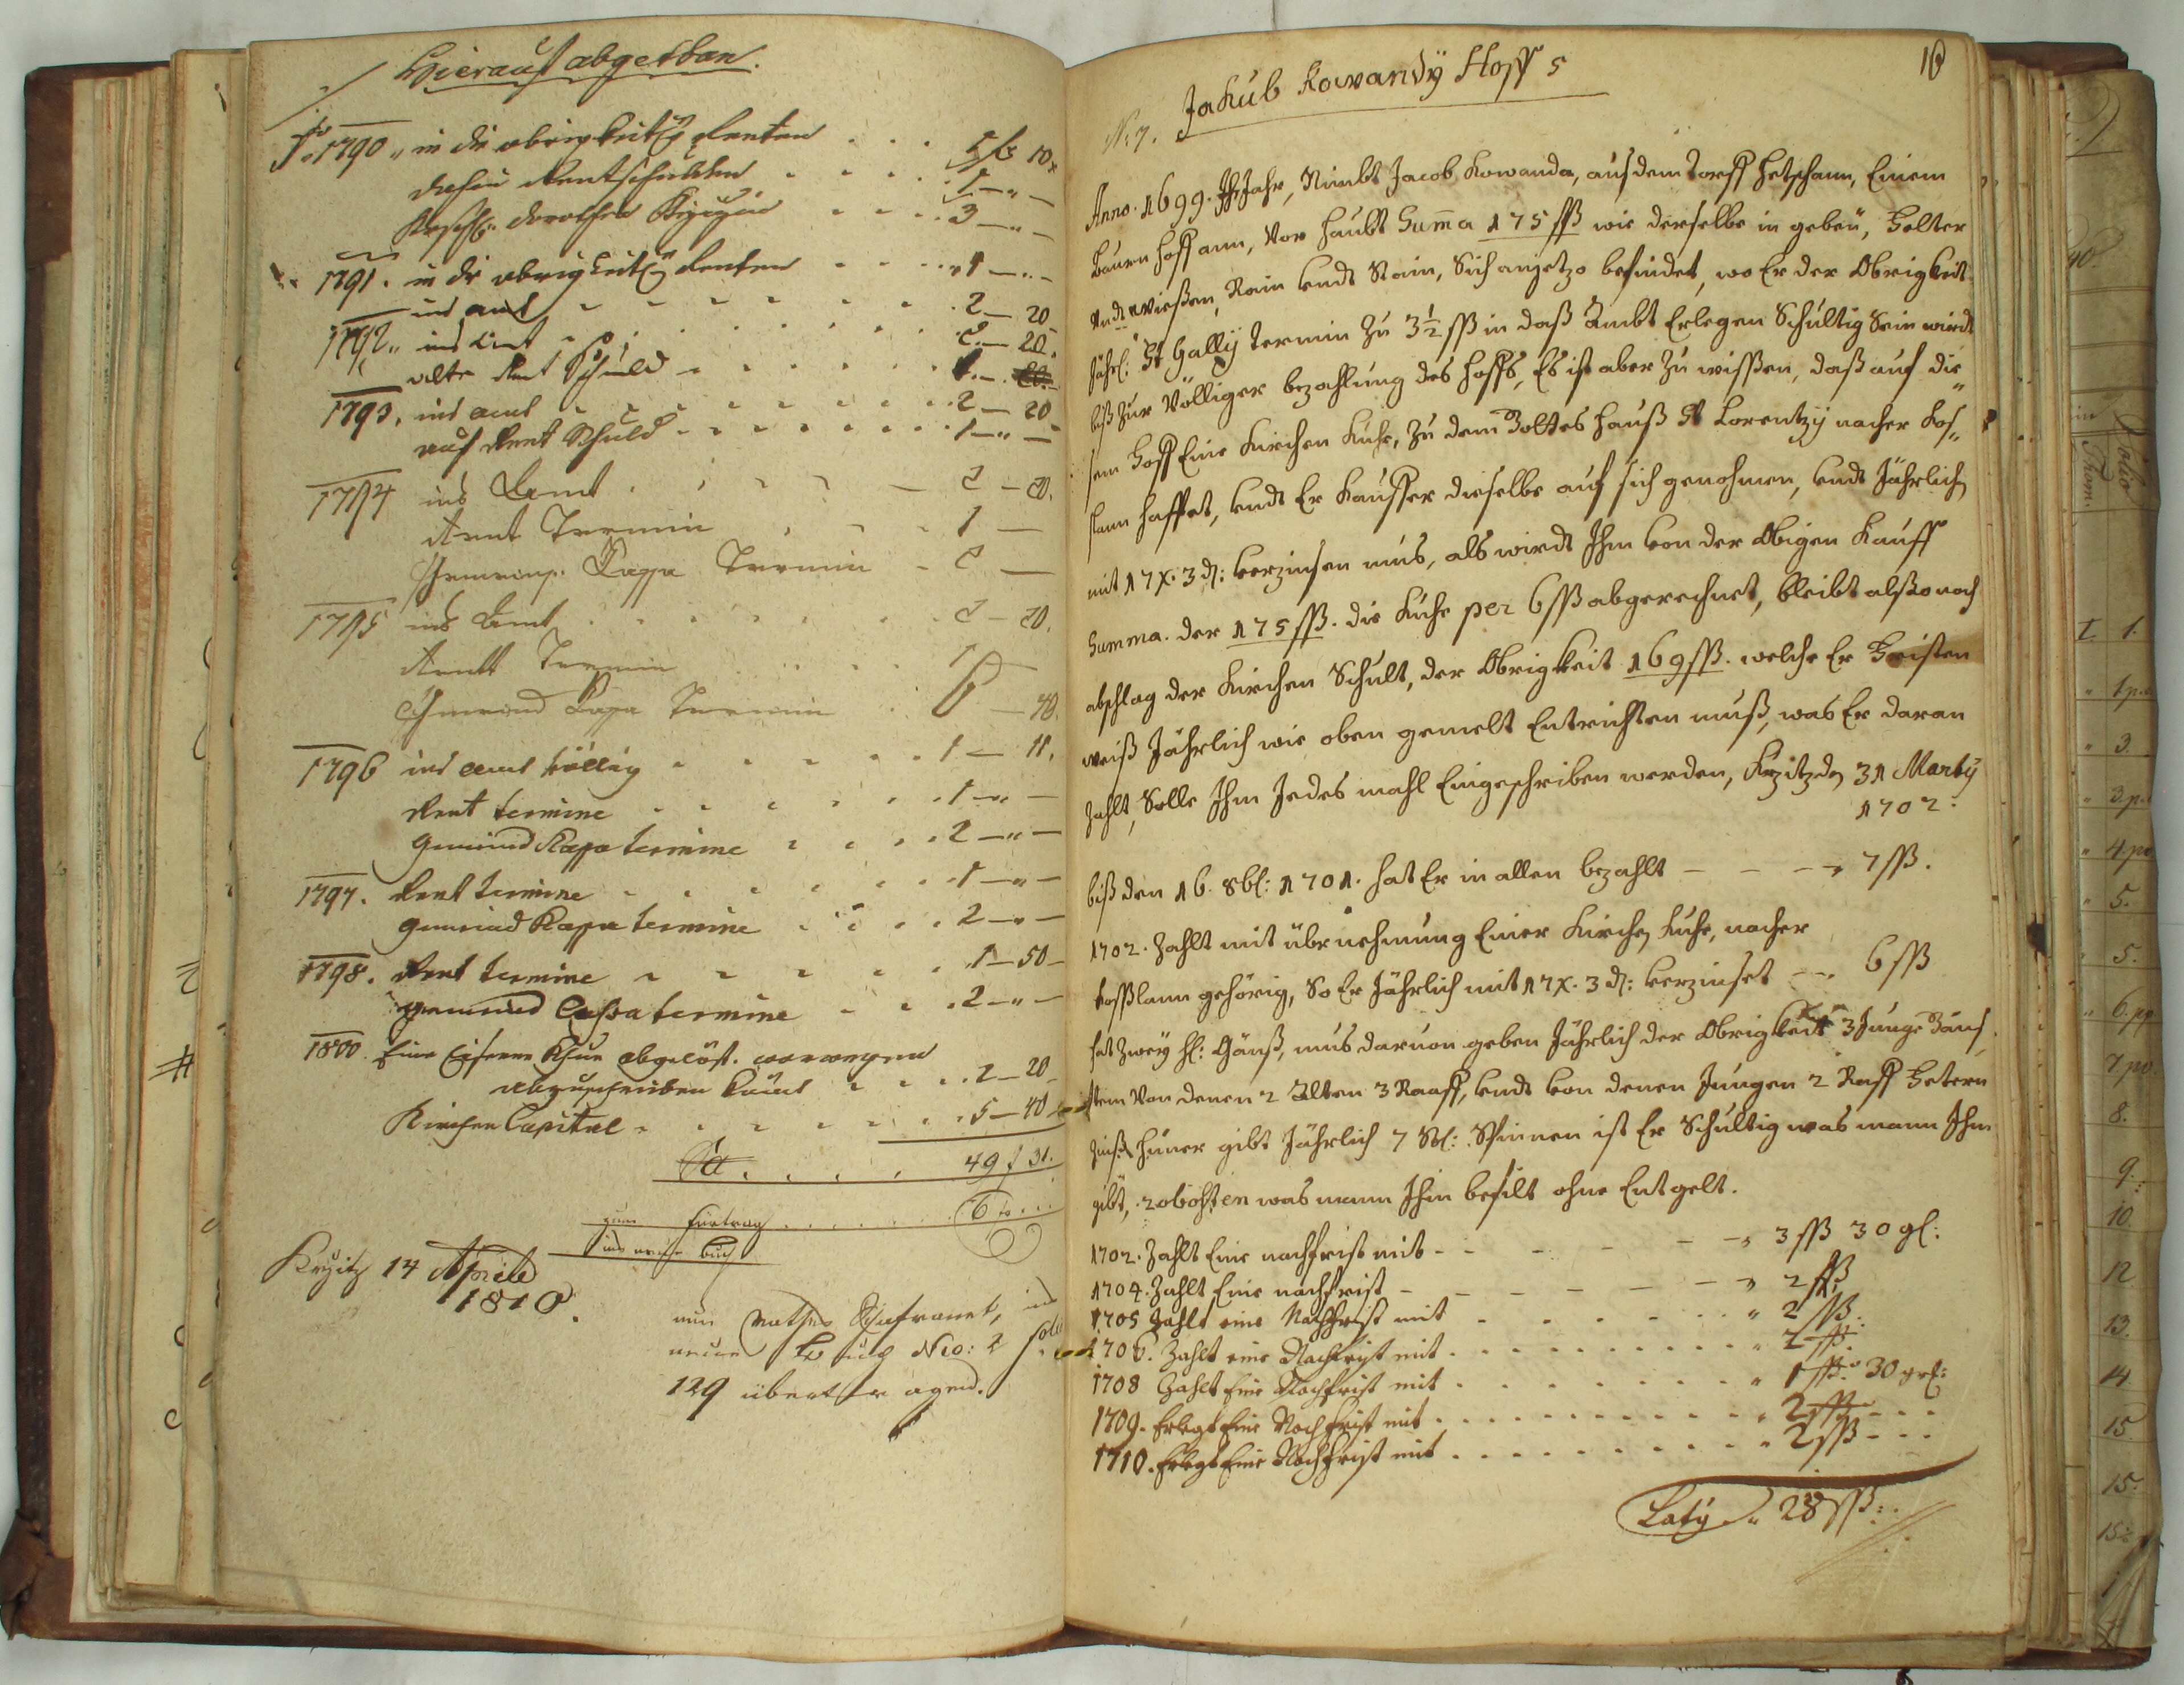 Hierauf abgethan.
1790 in die obrigkeitl: Renten . . . 5 fs 10x
dahin Rentschulden . . . . 1 — " —
Dorothea . . . . 3 — " —
1791. in die obrigkeitl: Renten . . . . 1 — " —
ins amt . . . . . . . 2 — 20
1792 ins Amt . . . . . . . 2 — 20.
alte Rent Schuld . . . . . . 1. —
1793. ins amt . . . . . . . 2 — 20
auf Rent Schuld . . . . . . . 1 — " —
1794 ins Amt . . . . — 2 — 20.
Rent Termin . . . . 1 —
Gemeind Kassa Termin . 2 —
1795 ins Amt . . . . . . . 2 — 20.
Rentt Termin . . . . 1 —
Gemeind Kassa Termin . . — 40.
1796 ins Amt völlig . . . . . . 1 — 11.
Rent termine . . . . . . 1 — " —
gemeind Kassa termine . . . . 2 — " —
1797. Rent termine . . . . . . 1 — " —
gemeind Kassa termine . . . . 2 — " —
1798. Rent termine . . . . . . 1 — 50 —
gemeind Cassa termine . . . 2 — " —
1800. Eine Eiserne Khue abgelöst.
abzuschreiben kömt . . . . 2 — 20
Kirchen Capital . . . . . . . 5 — 40
Sa . . . . . 49 f 31.
zum Furtrag . . . . . . . 6
ins neue Buch
Kržitz 14 Aprile
1810.
nun Mathes in
neuen Buch Nro: 2 folio
129 übertragen.
10
Jakub Kowandÿ Hoff 5
N: 7.
Anno. 1699. Jahr, Nimbt Jacob Kowanda, aus dem Dorff Hetschann, Einem
Bauern Hoff ann, Vor Haubt Suma 175 ßß wie derselbe in gebeü, Felter
undt Wießen, Rain undt Stain, Sich anjetzo befindet, wo Er der Obrigkeit
Jährl: St Gallÿ Termin Zu 3½ ßß in daß Ambt Erlegen Schultig Sein wirdt
biß Zur Völliger bezahlung des Hoffs, Es ist aber Zu wissen, daß auf die
sem Hoff Eine Kirchen Kuhe, Zu dem Gottes Hauß St Lorentzÿ nacher Kos
lann hafftet, undt Er Kauffer dieselbe auf sich genohmen, undt Jährlich
mit 17 X. 3 d: verzinsen mus, als wirdt Ihm von der Obigen Kauff
Summa. der 175 ßß. die Kuhe per 6 ßß abgerechnet, bleibt alßo nach
abschlag der Kirchen Schult, der Obrigkeit 169 ßß. welche Er Fristen
weiß Jährlich wie oben gemelt Entrichten muß, was Er daran
Zahlt, Solle Ihm Jedes mahl Eingeschriben werden, Krzitz den 31 Martÿ
1702:
biß den 16. 8bl: 1701. hat Er in allen bezahlt — — — 7 ßß.
1702. Zahlt mit übernehmung Einer Kirchen Kuhe, nacher
Kosslann gehörig, So Er Jährlich mit 17 X. 3 d: verzinset — . 6 ßß
hat Zweÿ Gänß, mus daruon geben Jährlich der Obrigkeit 3 Junge Gäns
item Von denen 2 Alten 3 Raaff, undt von denen Jungen 2 Raff Fetern
Zinß Hüner gibt Jährlich 7 Spinnen ist Er Schultig was mann Ihm
gibt, robothen was mann Ihm befilt ohne Entgelt.
1702. Zahlt Eine nachfrist mit — — — — 3 ßß 30 gl:
1704. Zahlt Eine nachfrist — — — — — 2 ßß
1705 Zahlt eine Nachfrist mit . . . . . . " 2 ßß.
1706. Zahlt eine Nachfrist mit . . . . . . . . " 2 ßß.
1708 Zahlt Eine Nachfrist mit . . . . . . . " 1 ßß. 30 grl:
1709. Erlegt Eine Nachfrist mit . . . . . . . . . " 2 ßß - - -
1710. Erlegt Eine Nachfrist mit . . . . . . . . " 2 ßß - - -
Latÿ " 28 ßß: